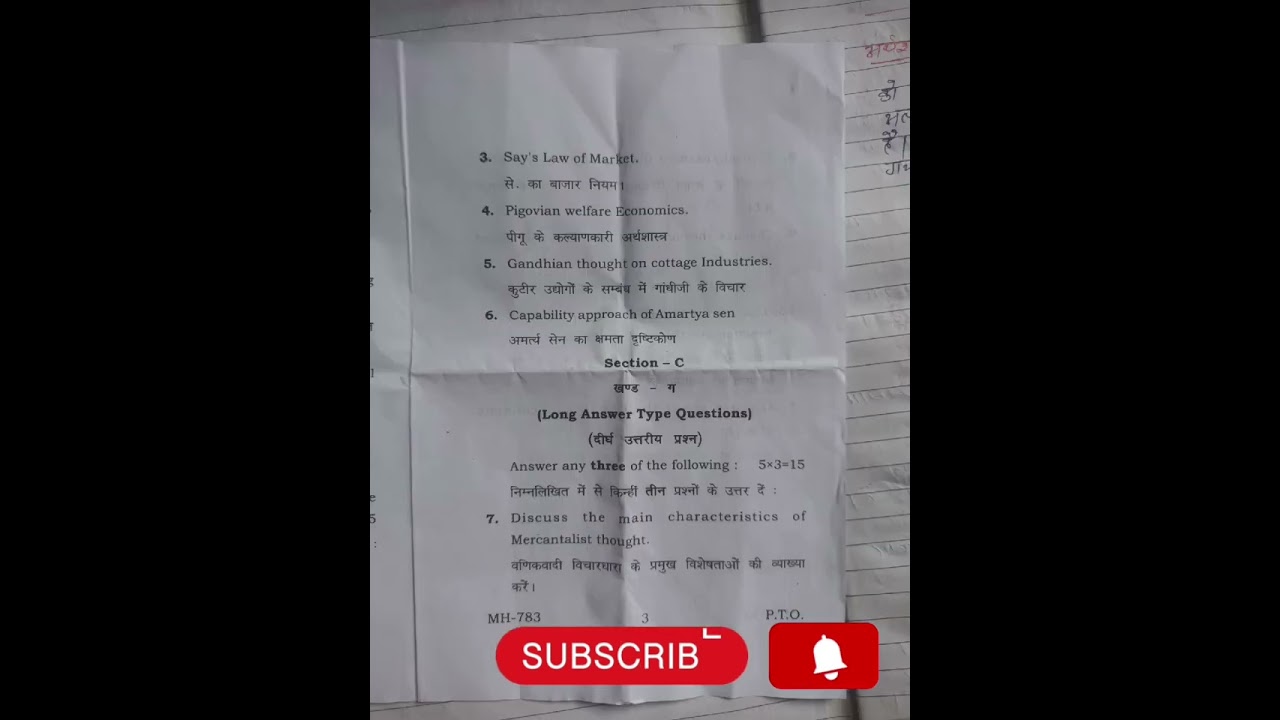 3. Say's Law of Market.
से. का बाजार नियम।
4. Pigovian welfare Economics.
पीगू के कल्याणकारी अर्थशास्त्र
5. Gandhian thought on cottage Industries.
कुटीर उद्योगों के सम्बंध में गांधीजी के विचार
6. Capability approach of Amartya sen
अमर्त्य सेन का क्षमता दृष्टिकोण
Section – C
खण्ड – ग
(Long Answer Type Questions)
(दीर्घ उत्तरीय प्रश्न)
Answer any three of the following : 5×3=15
निम्नलिखित में से किन्हीं तीन प्रश्नों के उत्तर दें :
7. Discuss the main characteristics of
Mercantalist thought.
वणिकवादी विचारधारा के प्रमुख विशेषताओं की व्याख्या
करें।
MH-783 3 P.T.O.
SUBSCRIB